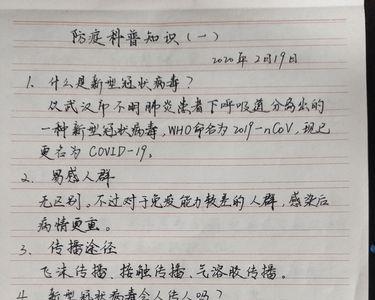 防疫科普知识(一)
2020年2月19日
1. 什么是新型冠状病毒?
从武汉市不明肺炎患者下呼吸道分离出的
一种新型冠状病毒,WHO命名为2019-nCoV,现已
更名为COVID-19。
2. 易感人群
无区别。不过对于免疫能力较差的人群,感染后
病情更重。
3. 传播途径
飞沫传播、接触传播、气溶胶传播。
4. 新型冠状病毒会人传人吗?